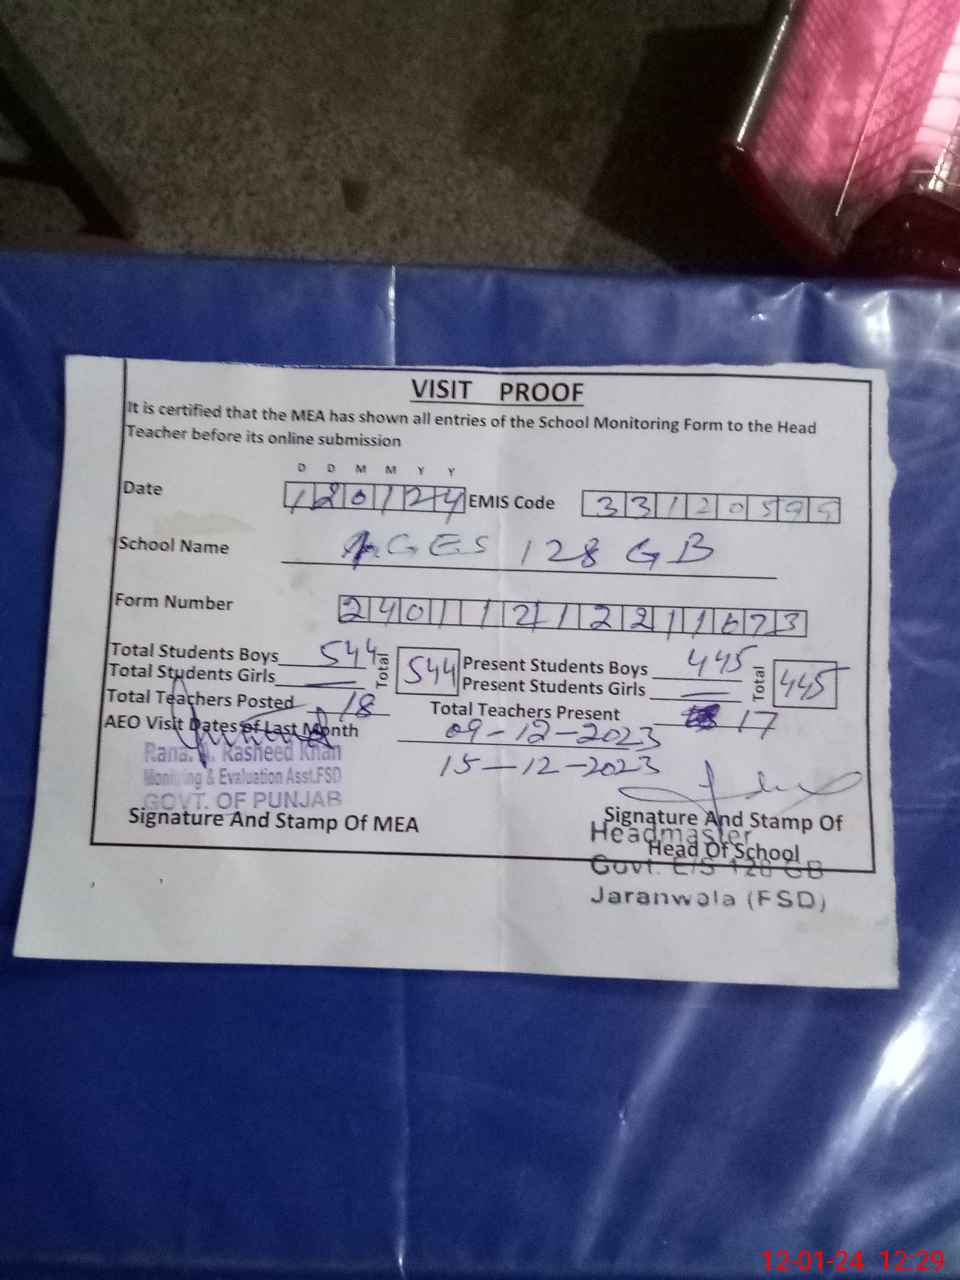 VISIT PROOF
It is certified that the MEA has shown all entries of the School Monitoring Form to the Head
Teacher before its online submission
D D M M Y Y
Date 120124 EMIS Code 33120595
School Name GES 128 GB
Form Number
Total Students Boys 544 Total 544 Present Students Boys 445 Total 445
Total Students Girls — Present Students Girls —
Total Teachers Posted 18 Total Teachers Present 17
AEO Visit Dates of Last Month 09-12-2023
15-12-2023
Rana. Rasheed Khan
Monitoring & Evaluation Asst.FSD
GOVT. OF PUNJAB
Signature And Stamp Of MEA
Signature And Stamp Of
Head Of School
Headmaster
Govt. E/S 128 GB
Jaranwala (FSD)
12-01-24 12:29